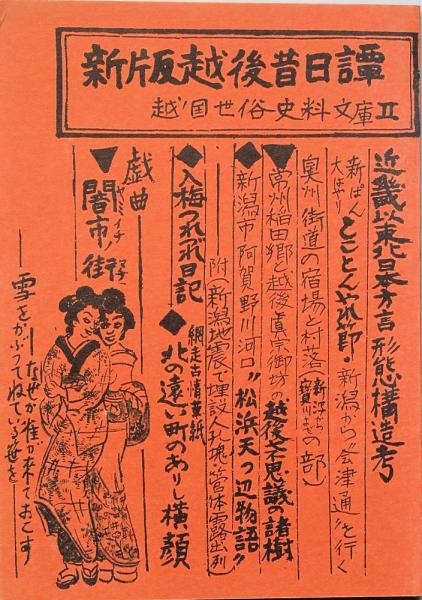 新版越後昔日譚
越ノ国世俗史料文庫 II
近畿以東北日本方言形態構造考
新ぱん大はやり とことんやれ節・新潟から〝会津通〟を行く
奥州街道の宿場と村落(新汐から寳川までの部)
▼常州稲田郷と越後眞宗御坊の越後七不思議の諸樹
◆新潟市阿賀野川河口〝松浜天つ辺物語〟
附(新潟地震で埋設人札塊・管体露出列)
◆入梅つれづれ日記
◆網走古情葉紙 北の遠い町のありし横顔
戯曲
▼闇市ノ街
ヤミイチ
雪をかぶってねている笹を
なぜか雀が来ておこす